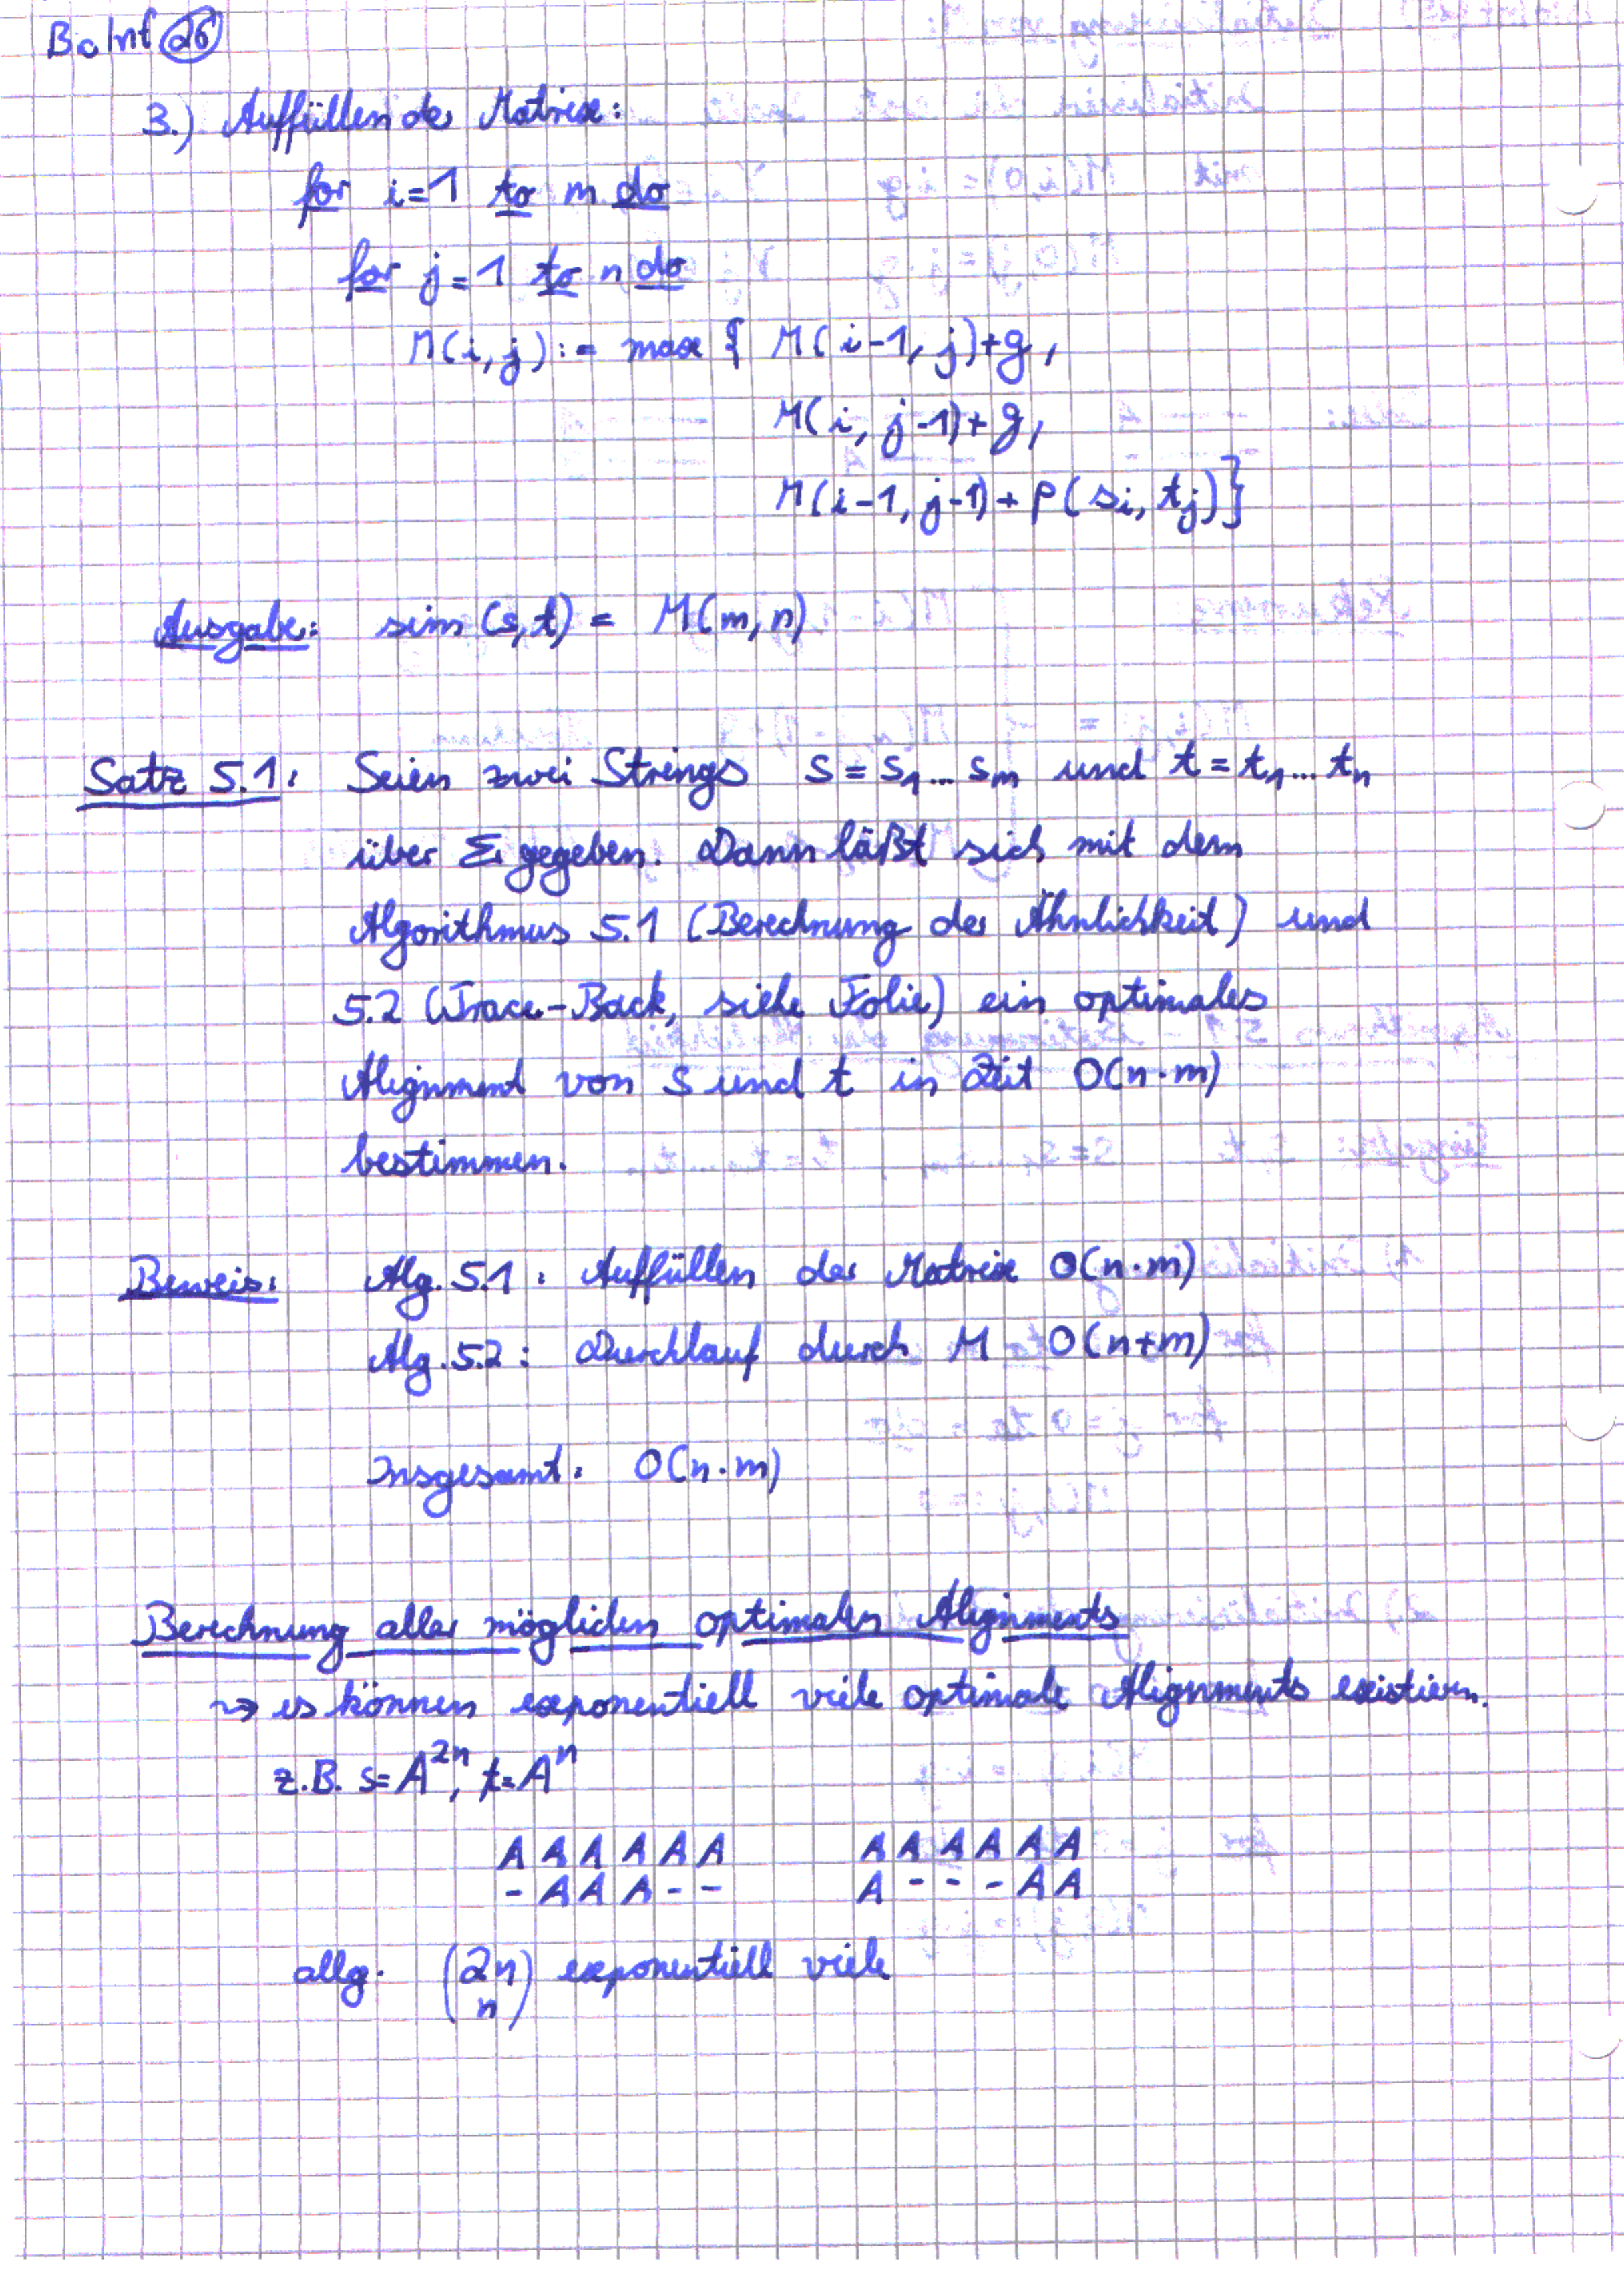 BoInf 26
3.) Auffüllen der Matrix:
for i=1 to m do
for j=1 to n do
M(i,j):= max { M(i-1, j)+g,
M(i, j-1)+g,
M(i-1, j-1)+p(si, tj)}
Ausgabe: sim (s,t) = M(m,n)
Satz 5.1: Seien zwei Strings s = s1... sm und t = t1... tn
über Σ gegeben. Dann läßt sich mit dem
Algorithmus 5.1 (Berechnung der Ähnlichkeit) und
5.2 (Trace-Back, siehe Folie) ein optimales
Alignment von s und t in Zeit O(n·m)
bestimmen.
Beweis: Alg. 5.1: Auffüllen der Matrix O(n·m)
Alg. 5.2: Durchlauf durch M O(n+m)
Insgesamt: O(n·m)
Berechnung aller möglichen optimalen Alignments
↝ es können exponentiell viele optimale Alignments existieren.
z.B. s=A^2n, t=A^n
A A A A A A A A A A A A
- A A A - - A - - - A A
allg. (2n n) exponentiell viele